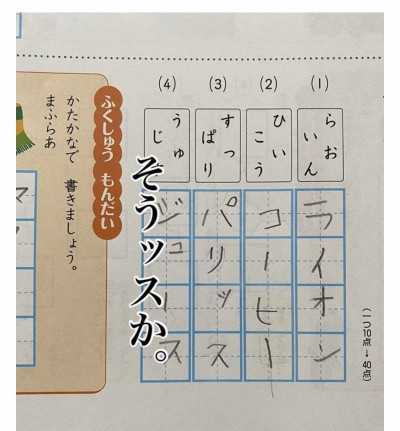 (一つ10点→40点)
(1)
らお
いん
ライオン
(2)
ひい
こう
コーヒー
(3)
すっ
ぱり
パリッス
(4)
うゅ
じ
ジュース
そうッスか。
ふくしゅう もんだい
かたかなで 書きましょう。
まふらあ
マ